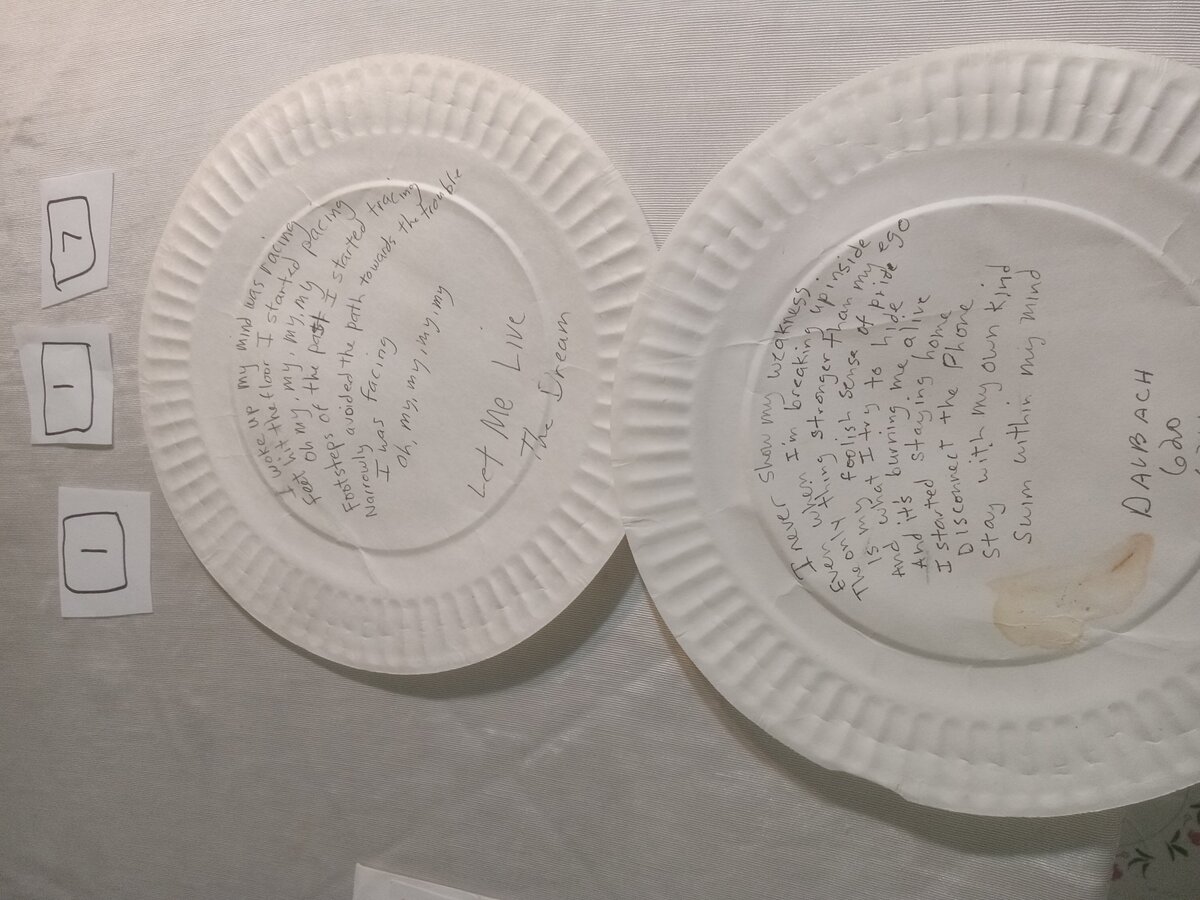 1 1 7
I woke up my mind was racing
I hit the floor I started pacing
Feet oh my, my, my, my
Footsteps of the past I started tracing
Narrowly avoided the path towards the trouble
I was facing
Oh, my, my, my, my
Let Me Live
The Dream
I never show my weakness
Even when I'm breaking up inside
The only thing stronger than my ego
Is my foolish sense of pride
And what I try to hide
And it's burning me alive
I started staying home
Disconnect the Phone
Stay with my own kind
Swim within my mind
DALBACH
620